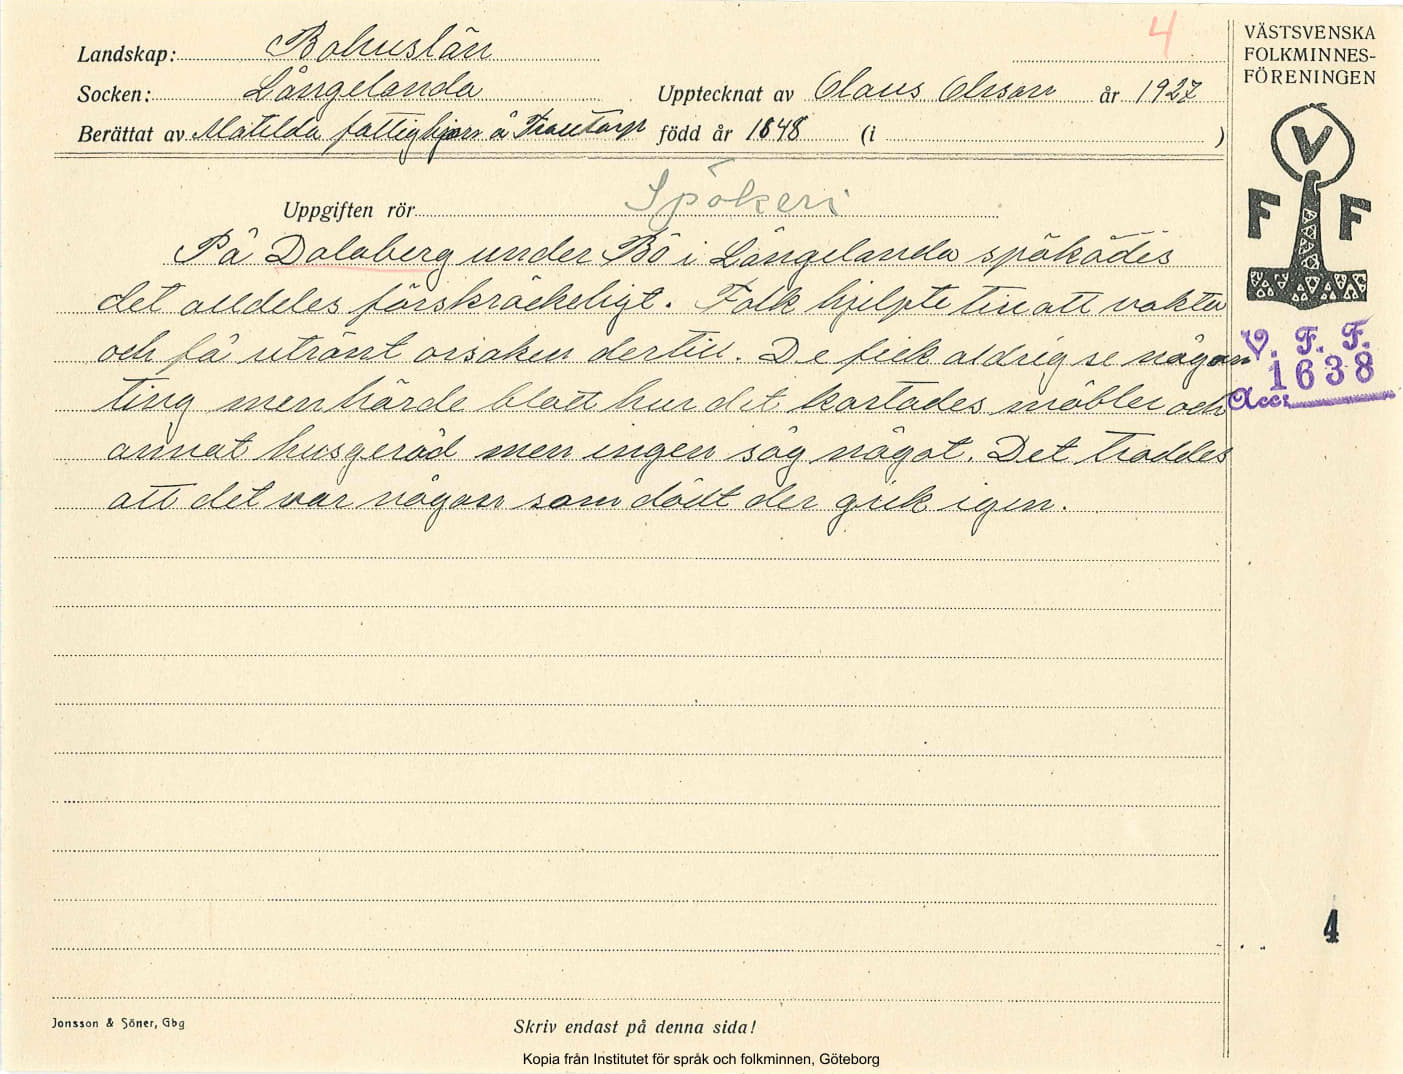 4
VÄSTSVENSKA
FOLKMINNES-
FÖRENINGEN
Landskap: Bohuslän
Socken: Långelanda Upptecknat av Olaus Olsson år 1927
Berättat av Matilda fattighjon å Trouthorp född år 1848 (i )
V
F F
Uppgiften rör Spökeri
På Dalaberg under Bö i Långelanda spökades
det alldeles förskräckeligt. Folk hjelpte till att vakta
och få utrönt orsaken dertill. De fick aldrig se någon
ting men hörde blott hur det kastades möbler och
annat husgeråd men ingen såg något. Det troddes
att det var någon som dödt der gick igen.
V. F. F.
1638
Acc:
4
Jonsson & Söner, Gbg
Skriv endast på denna sida!
Kopia från Institutet för språk och folkminnen, Göteborg